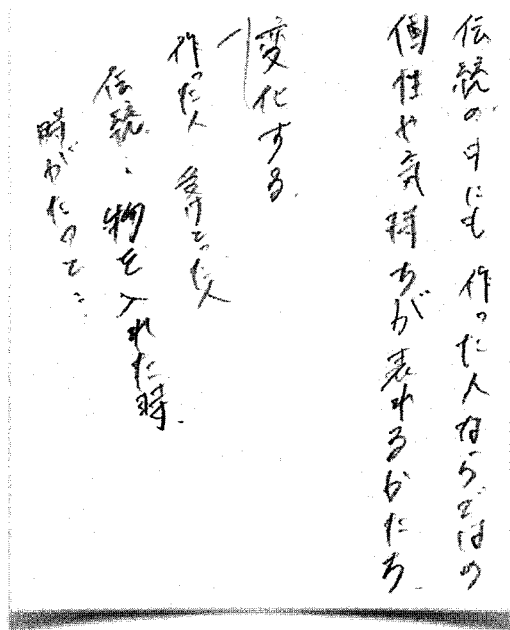 伝統の中にも 作った人ならではの
個性や気持ちが表れるかたち.
変化する.
作った人 受けとった人
伝統、物を入れた時.
時がたって…